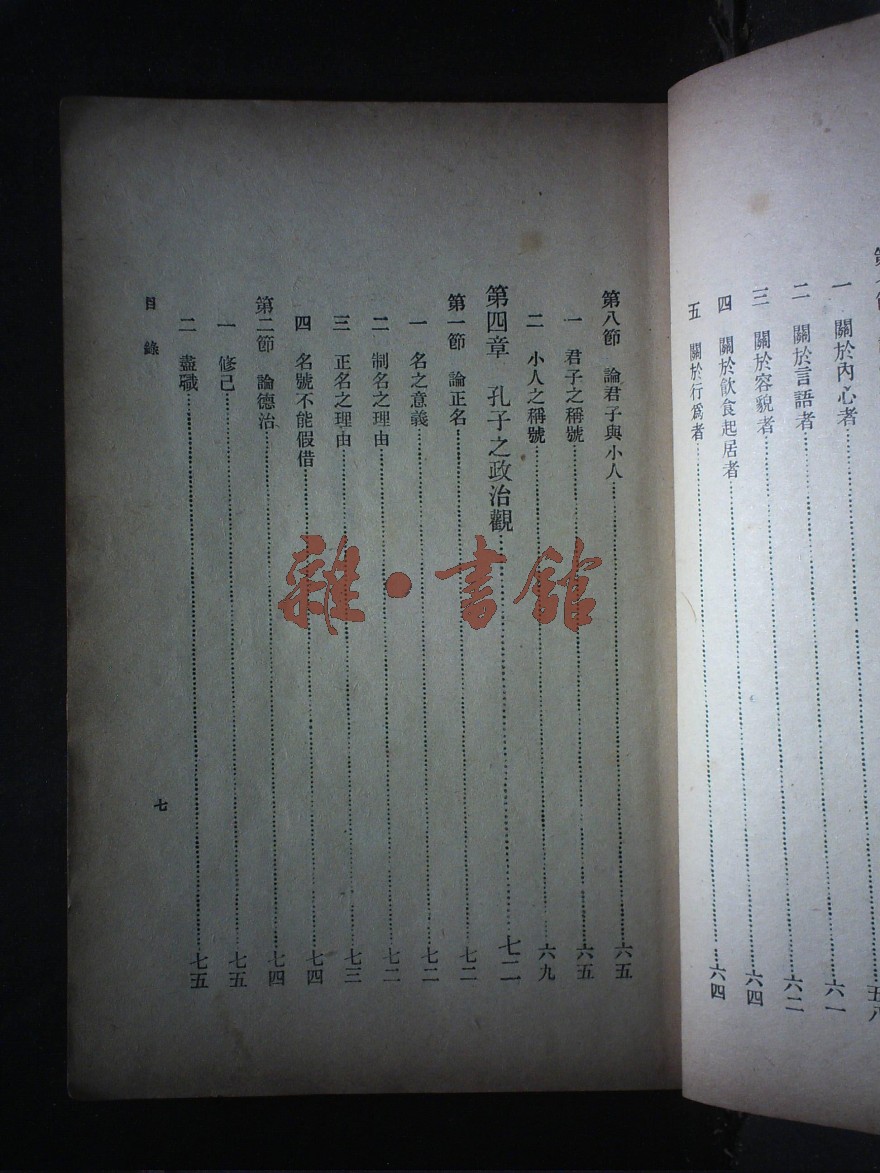 五八
一 關於內心者 六一
二 關於言語者 六二
三 關於容貌者 六四
四 關於飲食起居者 六四
五 關於行爲者
第八節 論君子與小人 六五
一 君子之稱號 六五
二 小人之稱號 六九
第四章 孔子之政治觀 七二
第一節 論正名 七二
一 名之意義 七二
二 制名之理由 七二
三 正名之理由 七三
四 名號不能假借 七四
第二節 論德治 七四
一 修己 七五
二 盡職 七五
目錄
七
雜·書館